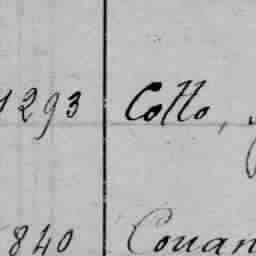 1293 Cotto,
840 Couan